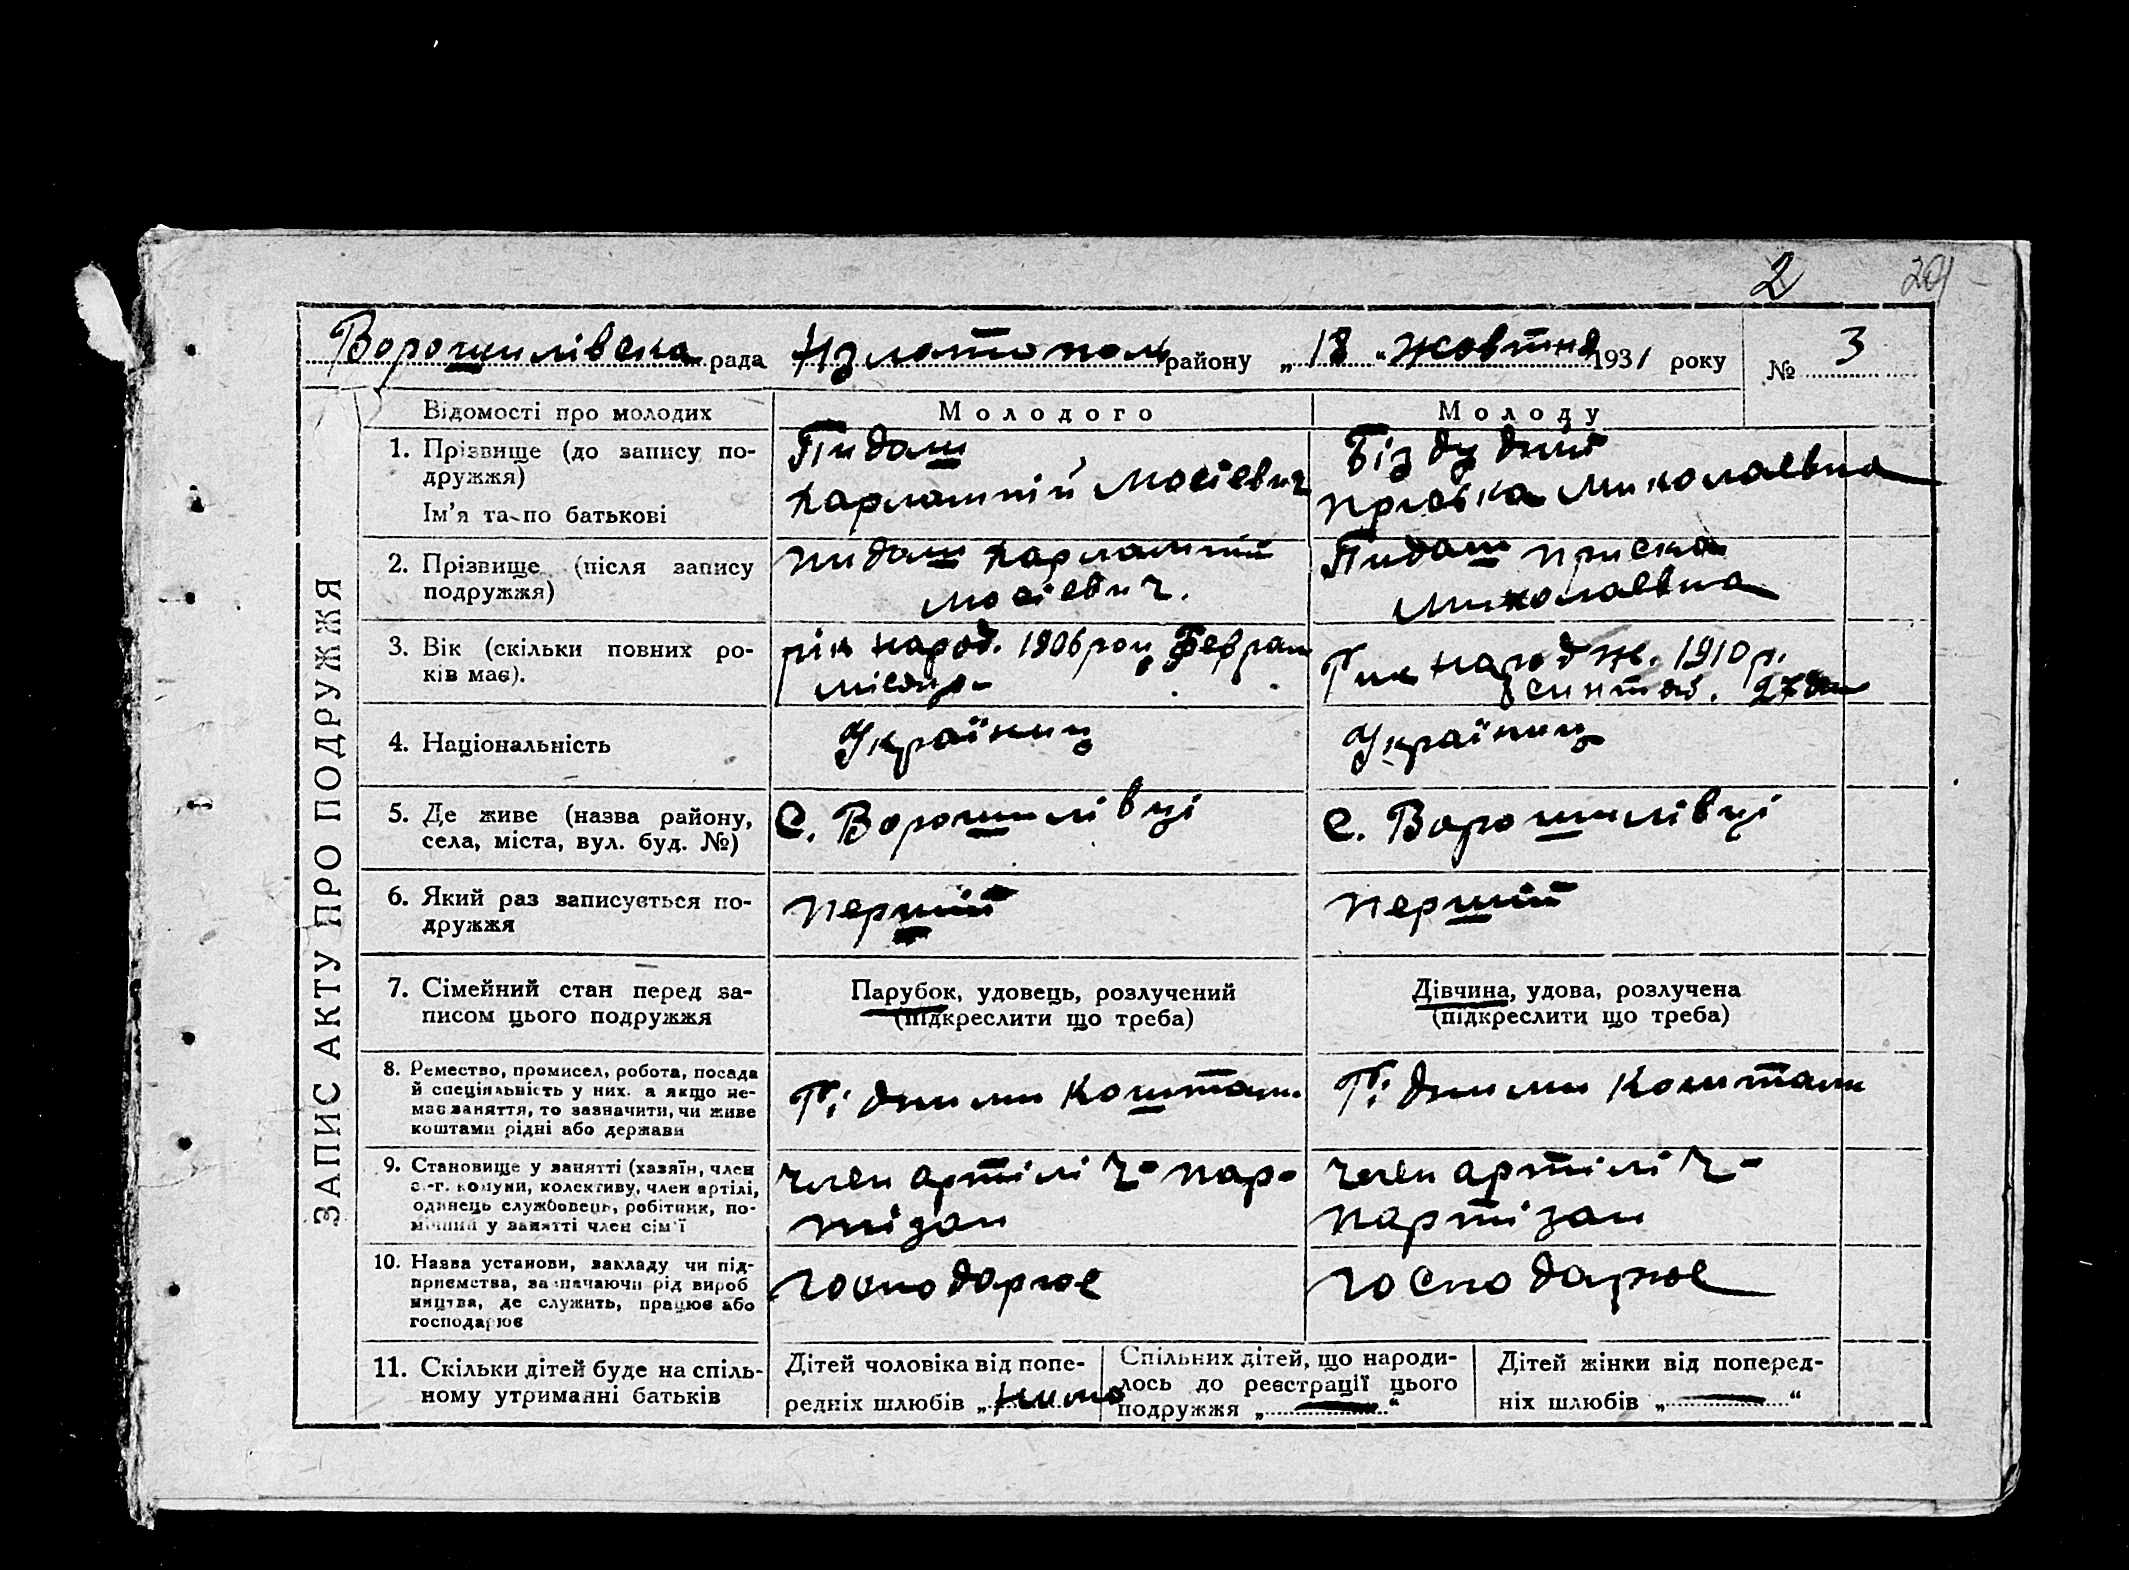 2
Ворошилівська рада Н золотопол району „ 18 “ жовтня 1931 року № 3
ЗАПИС АКТУ ПРО ПОДРУЖЖЯ
Відомості про молодих
Молодого
Молоду
1. Прізвище (до запису по-
дружжя)
Ім’я та по батькові
Пидаш
Харлампій Мосієвич
Бізду дний
Приська Миколаевна
2. Прізвище (після запису
подружжя)
Пидаш Харлампій
Мосієвич.
Пидаш Приска
Миколаевна
3. Вік (скільки повних ро-
ків має).
рік народ. 1906 року Феврал
місяця
Рик народж. 1910 р.
синтяб. 27 дн
4. Національність
Україниц
Україниц
5. Де живе (назва району,
села, міста, вул. буд. №)
С. Ворошилівці
С. Ворошилівці
6. Який раз записується по-
дружжя
первий
Перший
7. Сімейний стан перед за-
писом цього подружжя
Парубок, удовець, розлучений
(підкреслити що треба)
Дівчина, удова, розлучена
(підкреслити що треба)
8. Ремество, промисел, робота, посада
й спеціяльність у них. а якщо не-
має заняття, то зазначити, чи живе
коштами рідні або держави
Рі дними Коштами
Рі дними Коштами
9. Становище у занятті (хазяїн, член
с.-г. комуни, колективу, член артілі,
одинець службовець, робітник, по-
мічний у занятті член сім’ї
член артілі Ч- пар-
тізан
член артілі Ч-
партізан
10. Назва установи, закладу чи під-
приємства, зазначаючи рід вироб
ництва, де служить, працює або
господарює
господарює
господарює
11. Скільки дітей буде на спіль-
ному утриманні батьків
Дітей чоловіка від попе-
редніх шлюбів „ нима
Спільних дітей, що народи-
лось до реєстрації цього
подружжя „ — “
Дітей жінки від поперед-
ніх шлюбів „ — “